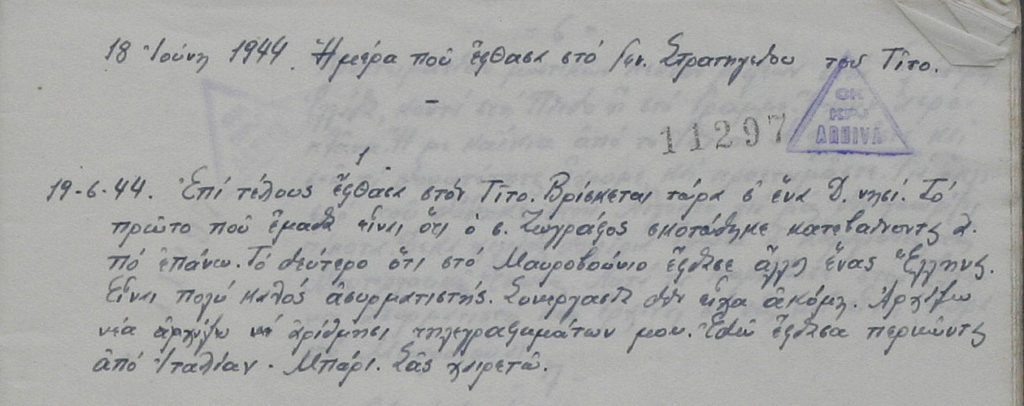 18 Ἰούνη 1944. Ἡμέρα ποῦ ἔφθασα στό Γεν. Στρατηγεῖου τοῦ Τίτο.
11297
CK
KPJ
ARHIVA
1
19-6-44. Ἐπί τέλους ἔφθασα στόν Τίτο. Βρίσκεται τώρα σ' ἕνα Δ. νησί. Τό
πρῶτο ποῦ ἔμαθα εἶναι ὅτι ὁ σ. Ζωγράφος σκοτώθηκε κατεβαίνοντς ἀ-
πό ἐπάνω. Τό δεύτερο ὅτι στό Μαυροβούνιο ἔφθασε ἄλλος ἕνας Ἕλληνας.
Εἶναι πολύ καλός ἀσυρματιστής. Συνεργασία δέν εἶχα ἀκόμη. Ἀρχίζω
νέα ἀρίθμησι τηλεγραφημάτων μου. Ἐδῶ ἔφθασα περνῶντς
ἀπό Ἰταλίαν. Μπάρι. Σᾶς χαιρετῶ.